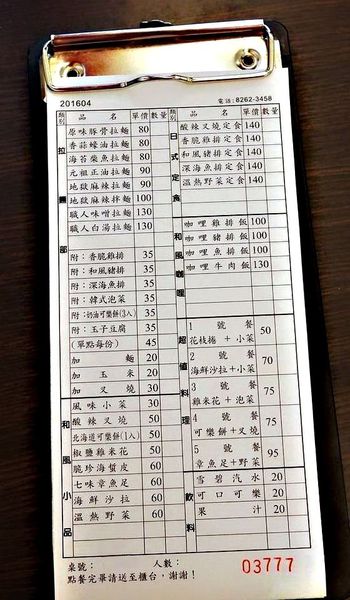 201604
電話:8262-3458
類別 品名 單價 數量
拉麵部
原味豚骨拉麵 80
香蒜蠔油拉麵 80
海苔柴魚拉麵 80
元祖正油拉麵 90
地獄麻辣拉麵 90
地獄麻辣拌麵 100
職人味噌拉麵 130
職人白湯拉麵 130
附:香脆雞排 35
附:和風豬排 35
附:深海魚排 35
附:韓式泡菜 35
附:奶油可樂餅(3入) 35
附:玉子豆腐 35
(單點每份) 45
加麵 20
加玉米 20
加叉燒 30
和風小品
風味小菜 30
酸辣叉燒 50
北海道可樂餅(1入) 50
椒鹽雞米花 50
脆珍海蜇皮 60
七味章魚足 60
海鮮沙拉 60
溫熱野菜 60
類別 品名 單價 數量
日式定食
酸辣叉燒定食 140
香脆雞排定食 140
和風豬排定食 140
深海魚排定食 140
溫熱野菜定食 140
和風咖哩
咖哩雞排飯 100
咖哩豬排飯 100
咖哩魚排飯 100
咖哩牛肉飯 130
超值料理
1號餐 50
花枝捲+小菜
2號餐 70
海鮮沙拉+小菜
3號餐 75
雞米花+泡菜
4號餐 75
可樂餅+叉燒
5號餐 95
章魚足+野菜
飲料
雪碧汽水 20
可口可樂 20
果汁 20
桌號: 人數:
點餐完畢請送至櫃台,謝謝!
03777